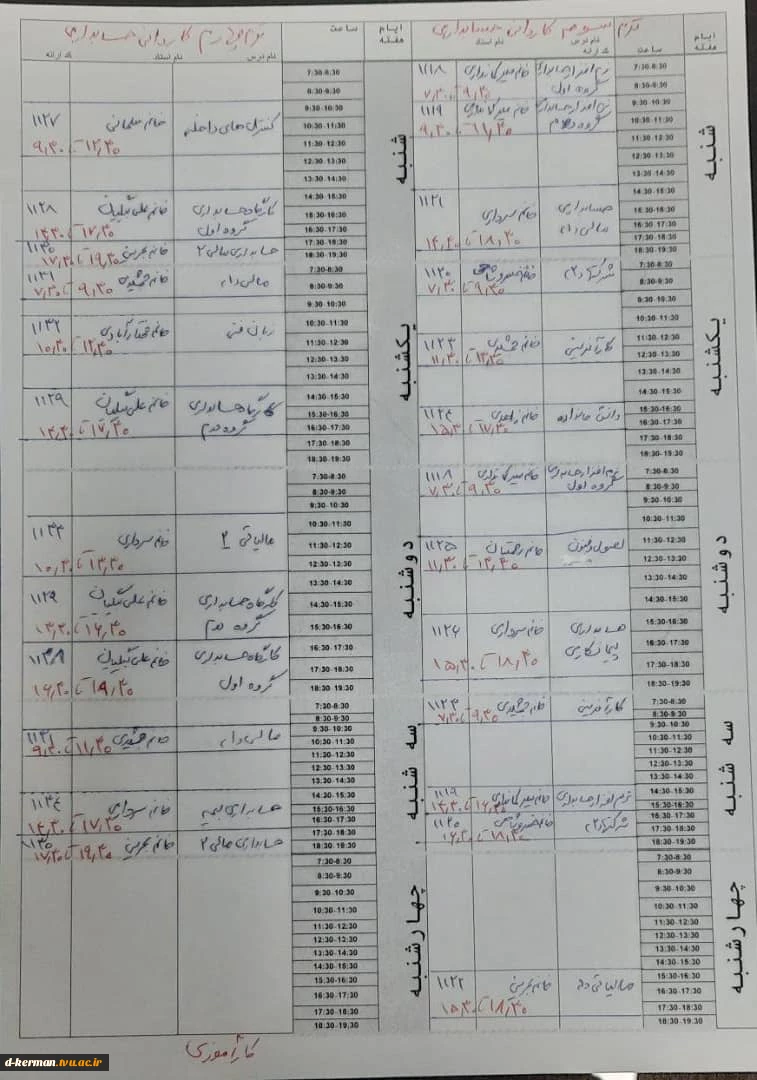 ترم سوم کاردانی حسابداری
ایام هفته
ساعت
نام درس
نام استاد
کد ارائه
شنبه
7:30-8:30
8:30-9:30
9:30-10:30
10:30-11:30
11:30-12:30
12:30-13:30
13:30-14:30
14:30-15:30
15:30-16:30
16:30-17:30
17:30-18:30
18:30-19:30
نرم افزار حسابداری گروه اول
۱۱۱۸
۷,۳۰ تا ۹,۳۰
نرم افزار حسابداری گروه دوم
۱۱۱۹
۹,۳۰ تا ۱۱,۳۰
حسابداری مالیاتی
خانم سرداری
۱۱۲۱
۱۴,۳۰ تا ۱۸,۳۰
یکشنبه
7:30-8:30
8:30-9:30
9:30-10:30
10:30-11:30
11:30-12:30
12:30-13:30
13:30-14:30
14:30-15:30
15:30-16:30
16:30-17:30
17:30-18:30
18:30-19:30
شرکتها ۲
۱۱۲۰
۷,۳۰ تا ۹,۳۰
کارآفرینی
خانم جمشیدی
۱۱۲۳
۱۱,۳۰ تا ۱۳,۳۰
دانش خانواده
خانم زاهدی
۱۱۲۴
۱۵,۳۰ تا ۱۷,۳۰
دوشنبه
7:30-8:30
8:30-9:30
9:30-10:30
10:30-11:30
11:30-12:30
12:30-13:30
13:30-14:30
14:30-15:30
15:30-16:30
16:30-17:30
17:30-18:30
18:30-19:30
نرم افزار حسابداری گروه اول
۱۱۱۸
۷,۳۰ تا ۹,۳۰
اصول و فنون
۱۱۲۵
۱۱,۳۰ تا ۱۳,۳۰
حسابداری پیمانکاری
خانم سرداری
۱۱۲۶
۱۵,۳۰ تا ۱۸,۳۰
سه شنبه
7:30-8:30
8:30-9:30
9:30-10:30
10:30-11:30
11:30-12:30
12:30-13:30
13:30-14:30
14:30-15:30
15:30-16:30
16:30-17:30
17:30-18:30
18:30-19:30
کارآفرینی
خانم جمشیدی
۱۱۲۳
۷,۳۰ تا ۹,۳۰
نرم افزار حسابداری
۱۱۱۹
۱۴,۳۰ تا ۱۶,۳۰
شرکتها ۲
۱۱۲۰
۱۶,۳۰ تا ۱۸,۳۰
چهارشنبه
7:30-8:30
8:30-9:30
9:30-10:30
10:30-11:30
11:30-12:30
12:30-13:30
13:30-14:30
14:30-15:30
15:30-16:30
16:30-17:30
17:30-18:30
18:30-19:30
خانم بحرینی
۱۱۲۲
۱۵,۳۰ تا ۱۸,۳۰
ترم چهارم کاردانی حسابداری
ایام هفته
ساعت
نام درس
نام استاد
کد ارائه
شنبه
7:30-8:30
8:30-9:30
9:30-10:30
10:30-11:30
11:30-12:30
12:30-13:30
13:30-14:30
14:30-15:30
15:30-16:30
16:30-17:30
17:30-18:30
18:30-19:30
کنترل های داخلی
خانم سلمانی
۱۱۲۷
۹,۳۰ تا ۱۲,۳۰
کارگاه حسابداری گروه اول
۱۱۲۸
۱۴,۳۰ تا ۱۷,۳۰
حسابداری مالی ۲
خانم بحرینی
۱۱۳۰
۱۷,۳۰ تا ۱۹,۳۰
یکشنبه
7:30-8:30
8:30-9:30
9:30-10:30
10:30-11:30
11:30-12:30
12:30-13:30
13:30-14:30
14:30-15:30
15:30-16:30
16:30-17:30
17:30-18:30
18:30-19:30
خانم جمشیدی
۱۱۳۱
۷,۳۰ تا ۹,۳۰
زبان فنی
خانم مختارآبادی
۱۱۳۲
۱۰,۳۰ تا ۱۲,۳۰
کارگاه حسابداری گروه دوم
۱۱۲۹
۱۴,۳۰ تا ۱۷,۳۰
دوشنبه
7:30-8:30
8:30-9:30
9:30-10:30
10:30-11:30
11:30-12:30
12:30-13:30
13:30-14:30
14:30-15:30
15:30-16:30
16:30-17:30
17:30-18:30
18:30-19:30
مالیاتی ۲
خانم سرداری
۱۱۳۳
۱۰,۳۰ تا ۱۳,۳۰
کارگاه حسابداری گروه دوم
۱۱۲۹
۱۳,۳۰ تا ۱۶,۳۰
کارگاه حسابداری گروه اول
۱۶,۳۰ تا ۱۹,۳۰
سه شنبه
7:30-8:30
8:30-9:30
9:30-10:30
10:30-11:30
11:30-12:30
12:30-13:30
13:30-14:30
14:30-15:30
15:30-16:30
16:30-17:30
17:30-18:30
18:30-19:30
خانم جمشیدی
۱۱۳۱
۹,۳۰ تا ۱۱,۳۰
حسابداری بیمه
خانم سرداری
۱۱۳۴
۱۴,۳۰ تا ۱۷,۳۰
حسابداری مالی ۲
خانم بحرینی
۱۱۳۰
۱۷,۳۰ تا ۱۹,۳۰
چهارشنبه
7:30-8:30
8:30-9:30
9:30-10:30
10:30-11:30
11:30-12:30
12:30-13:30
13:30-14:30
14:30-15:30
15:30-16:30
16:30-17:30
17:30-18:30
18:30-19:30
کارآموزی
d-kerman.tvu.ac.ir